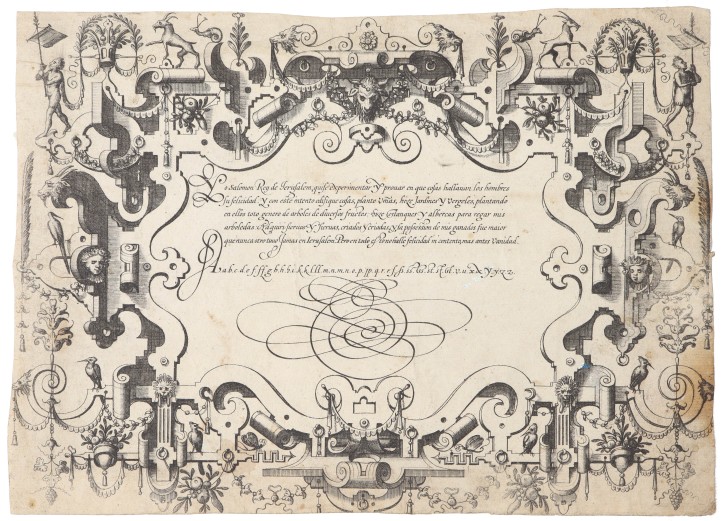 Yo Salomon Rey de Ierusalem, quise experimentar, Y prouar en que cosas hallauan los hombres
su felicidad. Y con este intento edifique casas, plante Viñas, hize Jardines Y Vergeles, plantando
en ellos todo genero de arboles de diuersos fructos: hize estanques y albercas para regar mis
arboledas: Adquiri sieruos Y sieruas, criados Y criadas, Y la possession de mis ganados fue maior
que nunca otro tuuo Jamas en Ierusalen. Pero en todo esto no halle felicidad ni contento, mas antes Vanidad.
A a b c d e f ff g h h i k k l l l m m n n o p p q r s